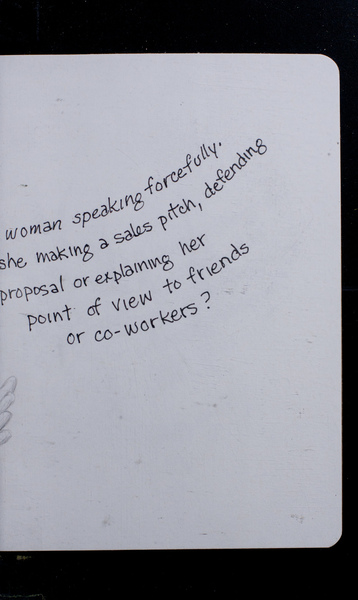 woman speaking forcefully.
she making a sales pitch, defending
proposal or explaining her
point of view to friends
or co-workers?